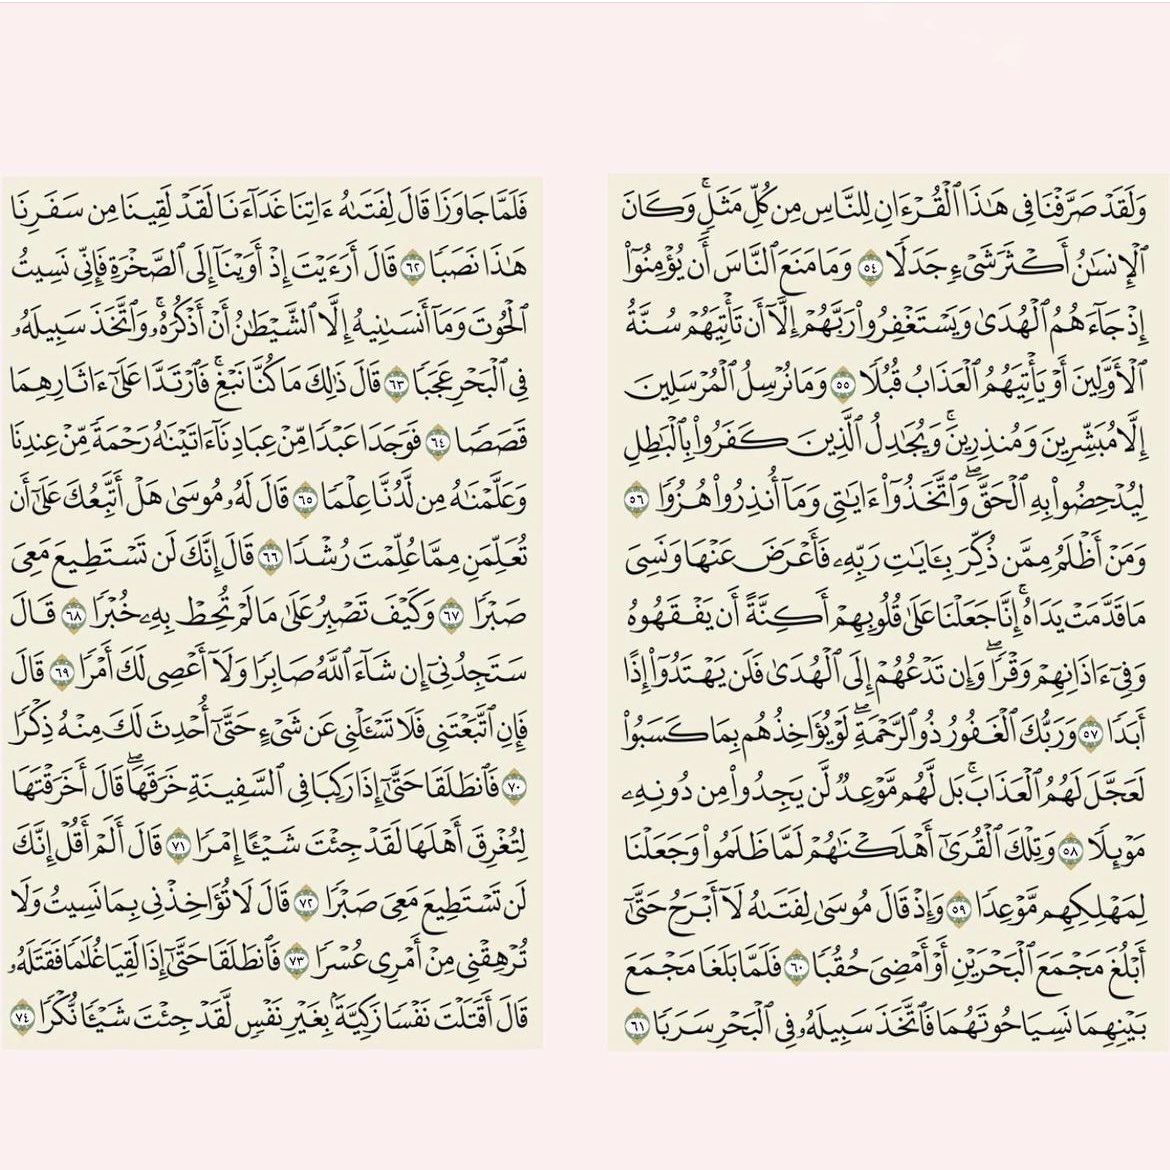 وَلَقَدْ صَرَّفْنَا فِي هَٰذَا ٱلْقُرْءَانِ لِلنَّاسِ مِن كُلِّ مَثَلٍۚ وَكَانَ
ٱلْإِنسَٰنُ أَكْثَرَ شَىْءٍ جَدَلًا ٥٤ وَمَا مَنَعَ ٱلنَّاسَ أَن يُؤْمِنُوٓا۟
إِذْ جَآءَهُمُ ٱلْهُدَىٰ وَيَسْتَغْفِرُوا۟ رَبَّهُمْ إِلَّآ أَن تَأْتِيَهُمْ سُنَّةُ
ٱلْأَوَّلِينَ أَوْ يَأْتِيَهُمُ ٱلْعَذَابُ قُبُلًا ٥٥ وَمَا نُرْسِلُ ٱلْمُرْسَلِينَ
إِلَّا مُبَشِّرِينَ وَمُنذِرِينَۚ وَيُجَٰدِلُ ٱلَّذِينَ كَفَرُوا۟ بِٱلْبَٰطِلِ
لِيُدْحِضُوا۟ بِهِ ٱلْحَقَّۖ وَٱتَّخَذُوٓا۟ ءَايَٰتِى وَمَآ أُنذِرُوا۟ هُزُوًا ٥٦
وَمَنْ أَظْلَمُ مِمَّن ذُكِّرَ بِـَٔايَٰتِ رَبِّهِۦ فَأَعْرَضَ عَنْهَا وَنَسِىَ
مَا قَدَّمَتْ يَدَاهُۚ إِنَّا جَعَلْنَا عَلَىٰ قُلُوبِهِمْ أَكِنَّةً أَن يَفْقَهُوهُ
وَفِىٓ ءَاذَانِهِمْ وَقْرًاۖ وَإِن تَدْعُهُمْ إِلَى ٱلْهُدَىٰ فَلَن يَهْتَدُوٓا۟ إِذًا
أَبَدًا ٥٧ وَرَبُّكَ ٱلْغَفُورُ ذُو ٱلرَّحْمَةِۖ لَوْ يُؤَاخِذُهُم بِمَا كَسَبُوا۟
لَعَجَّلَ لَهُمُ ٱلْعَذَابَۚ بَل لَّهُم مَّوْعِدٌ لَّن يَجِدُوا۟ مِن دُونِهِۦ
مَوْئِلًا ٥٨ وَتِلْكَ ٱلْقُرَىٰٓ أَهْلَكْنَٰهُمْ لَمَّا ظَلَمُوا۟ وَجَعَلْنَا
لِمَهْلِكِهِم مَّوْعِدًا ٥٩ وَإِذْ قَالَ مُوسَىٰ لِفَتَىٰهُ لَآ أَبْرَحُ حَتَّىٰٓ
أَبْلُغَ مَجْمَعَ ٱلْبَحْرَيْنِ أَوْ أَمْضِىَ حُقُبًا ٦٠ فَلَمَّا بَلَغَا مَجْمَعَ
بَيْنِهِمَا نَسِيَا حُوتَهُمَا فَٱتَّخَذَ سَبِيلَهُۥ فِى ٱلْبَحْرِ سَرَبًا ٦١
فَلَمَّا جَاوَزَا قَالَ لِفَتَىٰهُ ءَاتِنَا غَدَآءَنَا لَقَدْ لَقِينَا مِن سَفَرِنَا
هَٰذَا نَصَبًا ٦٢ قَالَ أَرَءَيْتَ إِذْ أَوَيْنَآ إِلَى ٱلصَّخْرَةِ فَإِنِّى نَسِيتُ
ٱلْحُوتَ وَمَآ أَنسَىٰنِيهُ إِلَّا ٱلشَّيْطَٰنُ أَنْ أَذْكُرَهُۥۚ وَٱتَّخَذَ سَبِيلَهُۥ
فِى ٱلْبَحْرِ عَجَبًا ٦٣ قَالَ ذَٰلِكَ مَا كُنَّا نَبْغِۚ فَٱرْتَدَّا عَلَىٰٓ ءَاثَارِهِمَا
قَصَصًا ٦٤ فَوَجَدَا عَبْدًا مِّنْ عِبَادِنَآ ءَاتَيْنَٰهُ رَحْمَةً مِّنْ عِندِنَا
وَعَلَّمْنَٰهُ مِن لَّدُنَّا عِلْمًا ٦٥ قَالَ لَهُۥ مُوسَىٰ هَلْ أَتَّبِعُكَ عَلَىٰٓ أَن
تُعَلِّمَنِ مِمَّا عُلِّمْتَ رُشْدًا ٦٦ قَالَ إِنَّكَ لَن تَسْتَطِيعَ مَعِىَ
صَبْرًا ٦٧ وَكَيْفَ تَصْبِرُ عَلَىٰ مَا لَمْ تُحِطْ بِهِۦ خُبْرًا ٦٨ قَالَ
سَتَجِدُنِىٓ إِن شَآءَ ٱللَّهُ صَابِرًا وَلَآ أَعْصِى لَكَ أَمْرًا ٦٩ قَالَ
فَإِنِ ٱتَّبَعْتَنِى فَلَا تَسْـَٔلْنِى عَن شَىْءٍ حَتَّىٰٓ أُحْدِثَ لَكَ مِنْهُ ذِكْرًا
٧٠ فَٱنطَلَقَا حَتَّىٰٓ إِذَا رَكِبَا فِى ٱلسَّفِينَةِ خَرَقَهَاۖ قَالَ أَخَرَقْتَهَا
لِتُغْرِقَ أَهْلَهَا لَقَدْ جِئْتَ شَيْـًٔا إِمْرًا ٧١ قَالَ أَلَمْ أَقُلْ إِنَّكَ
لَن تَسْتَطِيعَ مَعِىَ صَبْرًا ٧٢ قَالَ لَا تُؤَاخِذْنِى بِمَا نَسِيتُ وَلَا
تُرْهِقْنِى مِنْ أَمْرِى عُسْرًا ٧٣ فَٱنطَلَقَا حَتَّىٰٓ إِذَا لَقِيَا غُلَٰمًا فَقَتَلَهُۥ
قَالَ أَقَتَلْتَ نَفْسًا زَكِيَّةًۢ بِغَيْرِ نَفْسٍ لَّقَدْ جِئْتَ شَيْـًٔا نُّكْرًا ٧٤